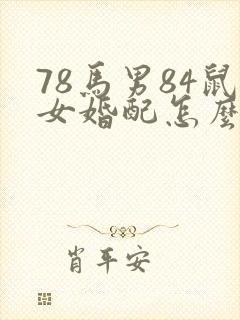 78馬男84鼠
女婚配怎麽
肖平安